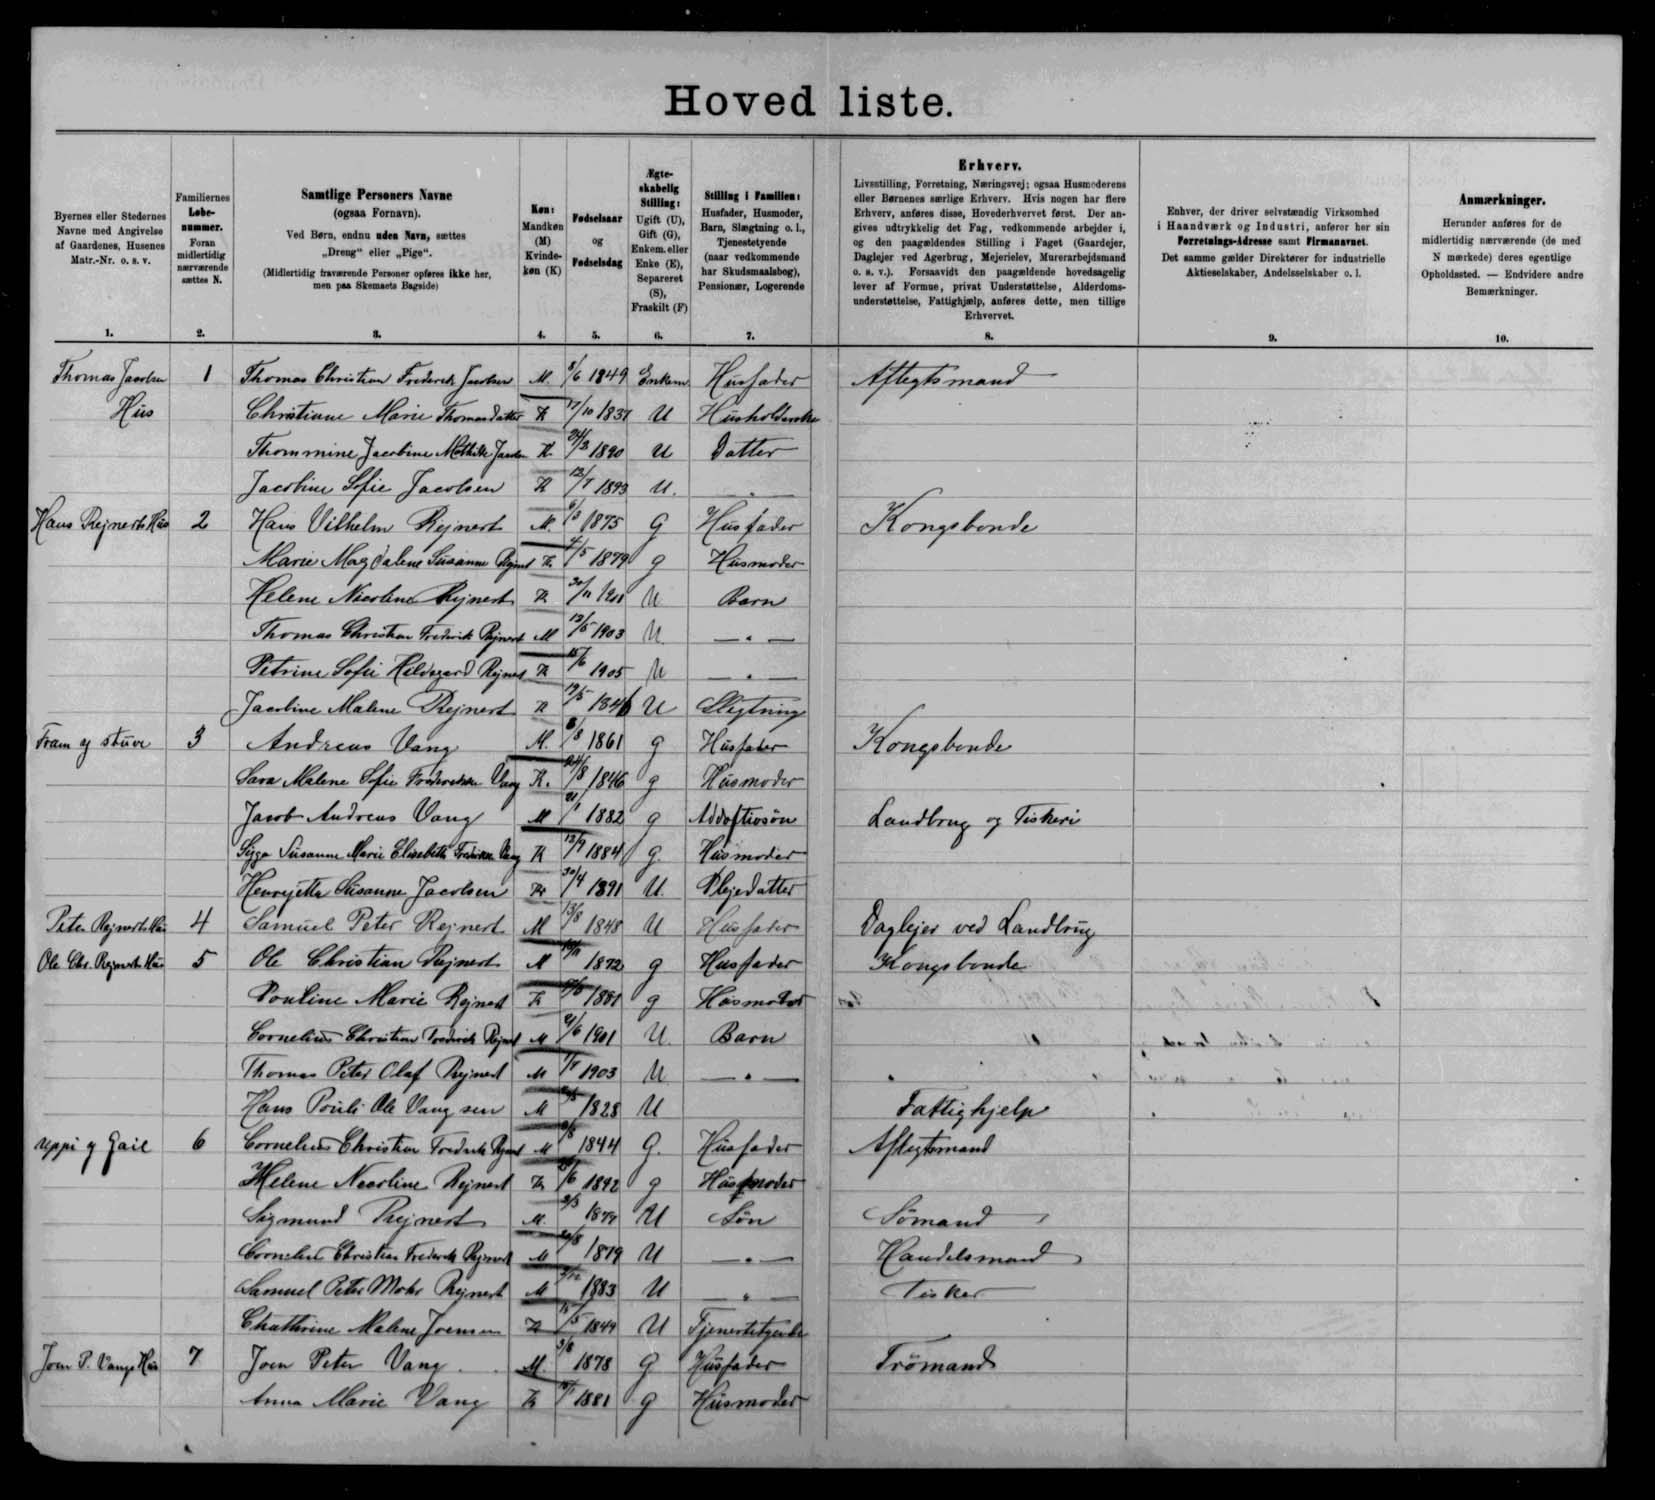 Hoved liste.
Byernes eller Stedernes Navne med Angivelse af Gaardenes, Husenes Matr.-Nr. o. s. v.
Familiernes Løbe-nummer. Foran midlertidig nærværende sættes N.
Samtlige Personers Navne (ogsaa Fornavn).
Ved Børn, endnu uden Navn, sættes „Dreng“ eller „Pige“.
(Midlertidig fraværende Personer opføres ikke her, men paa Skemaets Bagside)
Køn: Mandkøn (M) Kvinde-køn (K)
Fødselsaar og Fødselsdag
Ægte-skabelig Stilling: Ugift (U), Gift (G), Enkem. eller Enke (E), Separeret (S), Fraskilt (F)
Stilling i Familien: Husfader, Husmoder, Barn, Slægtning o. l., Tjenestetyende (naar vedkommende har Skudsmaalsbog), Pensionær, Logerende
Erhverv.
Livsstilling, Forretning, Næringsvej; ogsaa Husmoderens eller Børnenes særlige Erhverv. Hvis nogen har flere Erhverv, anføres disse, Hovederhvervet først. Der angives udtrykkelig det Fag, vedkommende arbejder i, og den paagældendes Stilling i Faget (Gaardejer, Daglejer ved Agerbrug, Mejerielev, Murerarbejdsmand o. s. v.). Forsaavidt den paagældende hovedsagelig lever af Formue, privat Understøttelse, Alderdoms-understøttelse, Fattighjælp, anføres dette, men tillige Erhvervet.
Enhver, der driver selvstændig Virksomhed i Haandværk og Industri, anfører her sin Forretnings-Adresse samt Firmanavnet. Det samme gælder Direktører for industrielle Aktieselskaber, Andelsselskaber o. l.
Anmærkninger.
Herunder anføres for de midlertidig nærværende (de med N mærkede) deres egentlige Opholdssted. — Endvidere andre Bemærkninger.
1. 2. 3. 4. 5. 6. 7. 8. 9. 10.
Thomas Jacobsen 1 Thomas Christian Frederik Jacobsen M. 8/6 1849 Enkem Husfader Aftegtsmand
Hus Christiane Marie Thomasdatter K 17/10 1837 U Husholderske
Thommine Jacobine Mathilde K 24/3 1890 U Datter
Jacobine Sofie Jacobsen K 1893 U. — " —
Hans Rejnerts Hus 2 Hans Vilhelm Rejnert M. 1875 G Husfader Kongsbonde
Marie Magdalene Susanne Rejnert K 4/5 1879 g Husmoder
Helene Nicoline Rejnert K 30/11 1901 U Barn
Thomas Christian Frederik Rejnert M 12/5 1903 U — " —
Petrine Sofie Hildegard Rejnert K 15/6 1905 U — " —
Jacobine Malene Rejnert K 19/5 1846 U Slegtning
Fram y stuve 3 Andreas Vang M. 8/8 1861 g Husfader Kongsbonde
Sara Malene Sofie Frederikke Vang K. 24/8 1846 g Husmoder
Jacob Andreas Vang M 21/1 1882 g Addoftivsön Landbrug og Fiskeri
Susanne Marie Elisabeth Frederikke Vang K 1884 g. Husmoder
Henrijetta Susanne Jacobsen K 30/4 1891 U. Plejedatter
Peter Rejnerts Hus 4 Samuel Peter Rejnert M 13/8 1848 U Husfader Daglejer ved Landbrug
Ole Chr. Rejnerts Hus 5 Ole Christian Rejnert M 1872 g Husfader Kongsbonde
Pouline Marie Rejnert K 1881 g Husmoder
Cornelius Christian Frederik Rejnert M 21/6 1901 U. Barn
Thomas Peter Olaf Rejnert M 1903 U — " —
Hans Pouli Ole Vang sen M 1828 U Fattighjelp
uppi y Gail 6 Cornelius Christian Frederik Rejnert M 1844 G. Husfader Aftegtsmand
Helene Nicoline Rejnert K 1842 g Husmoder
Sigmund Rejnert M. 2/3 U Sön Sömand
Cornelius Christian Frederik Rejnert M 1879 U — " — Handelsmand
Samuel Peter Mohr Rejnert M 1883 U — " — Fisker
Chathrine Malene Joensen K U Tjenestetyende
Joen P. Vangs Hus 7 Joen Peter Vang M. 3/8 1878 G Husfader Trömand
Anna Marie Vang K 1881 g Husmoder